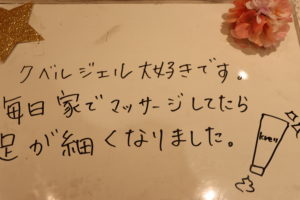 クベルジェル大好きです。
毎日家でマッサージしてたら
足が細くなりました。